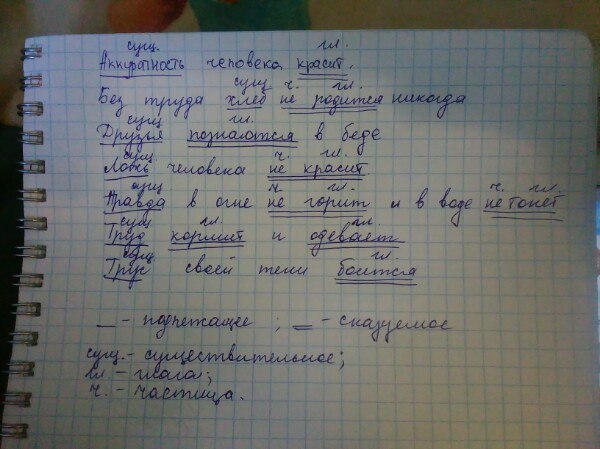 сущ. гл.
Аккуратность человека красит.
сущ ч. гл.
Без труда хлеб не родится никогда
сущ гл.
Друзья познаются в беде
сущ. ч. гл.
Ложь человека не красит
сущ ч. гл. ч. гл.
Правда в огне не горит и в воде не тонет
сущ гл. гл.
Труд кормит и одевает
сущ. гл.
Трус своей тени боится
— - подлежащее ; = - сказуемое
сущ. - существительное;
гл - глагол;
ч. - частица.